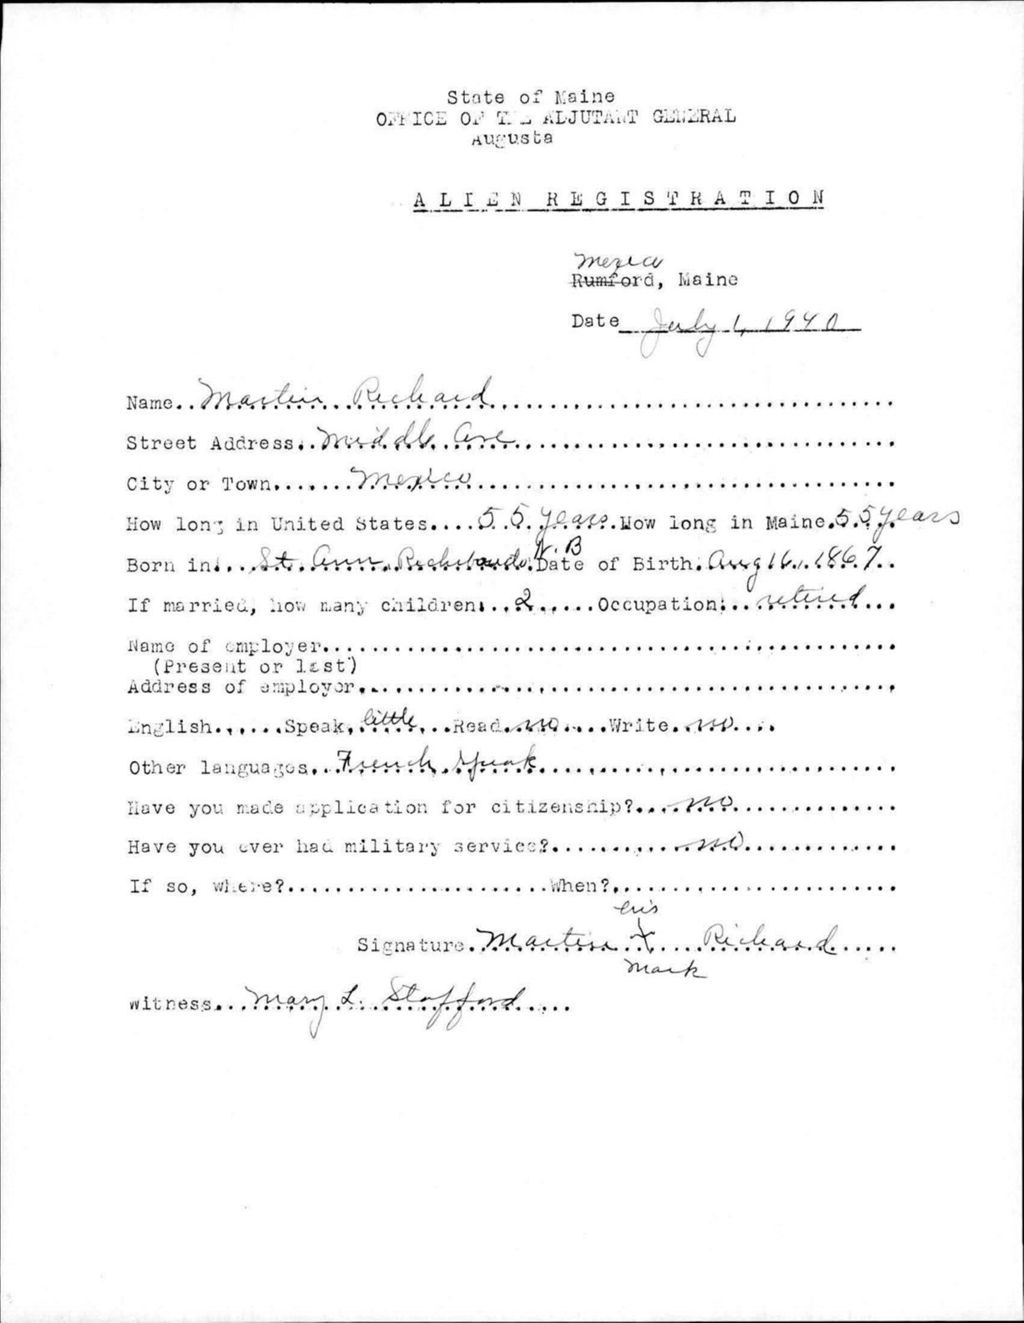 State of Maine
OFFICE OF THE ADJUTANT GENERAL
Augusta
ALIEN REGISTRATION
Mexico
Rumford, Maine
Date July 1, 1940
Name..Martin Richard
Street Address..Middle Ave
City or Town.......Mexico
How long in United States....55 years.How long in Maine.55 years
Born in....St. Ann, N.B Date of Birth.Aug 16, 1867..
If married, how many children...2......Occupation...retired...
Name of employer
(Present or last)
Address of employer
English.......Speak.little...Read.no.....Write.no....
Other languages..French Speak
Have you made application for citizenship?....no
Have you ever had military service?............no
If so, where?.......................When?
his
Signature.Martin X....Richard......
mark
Witness...Mary L. Stafford